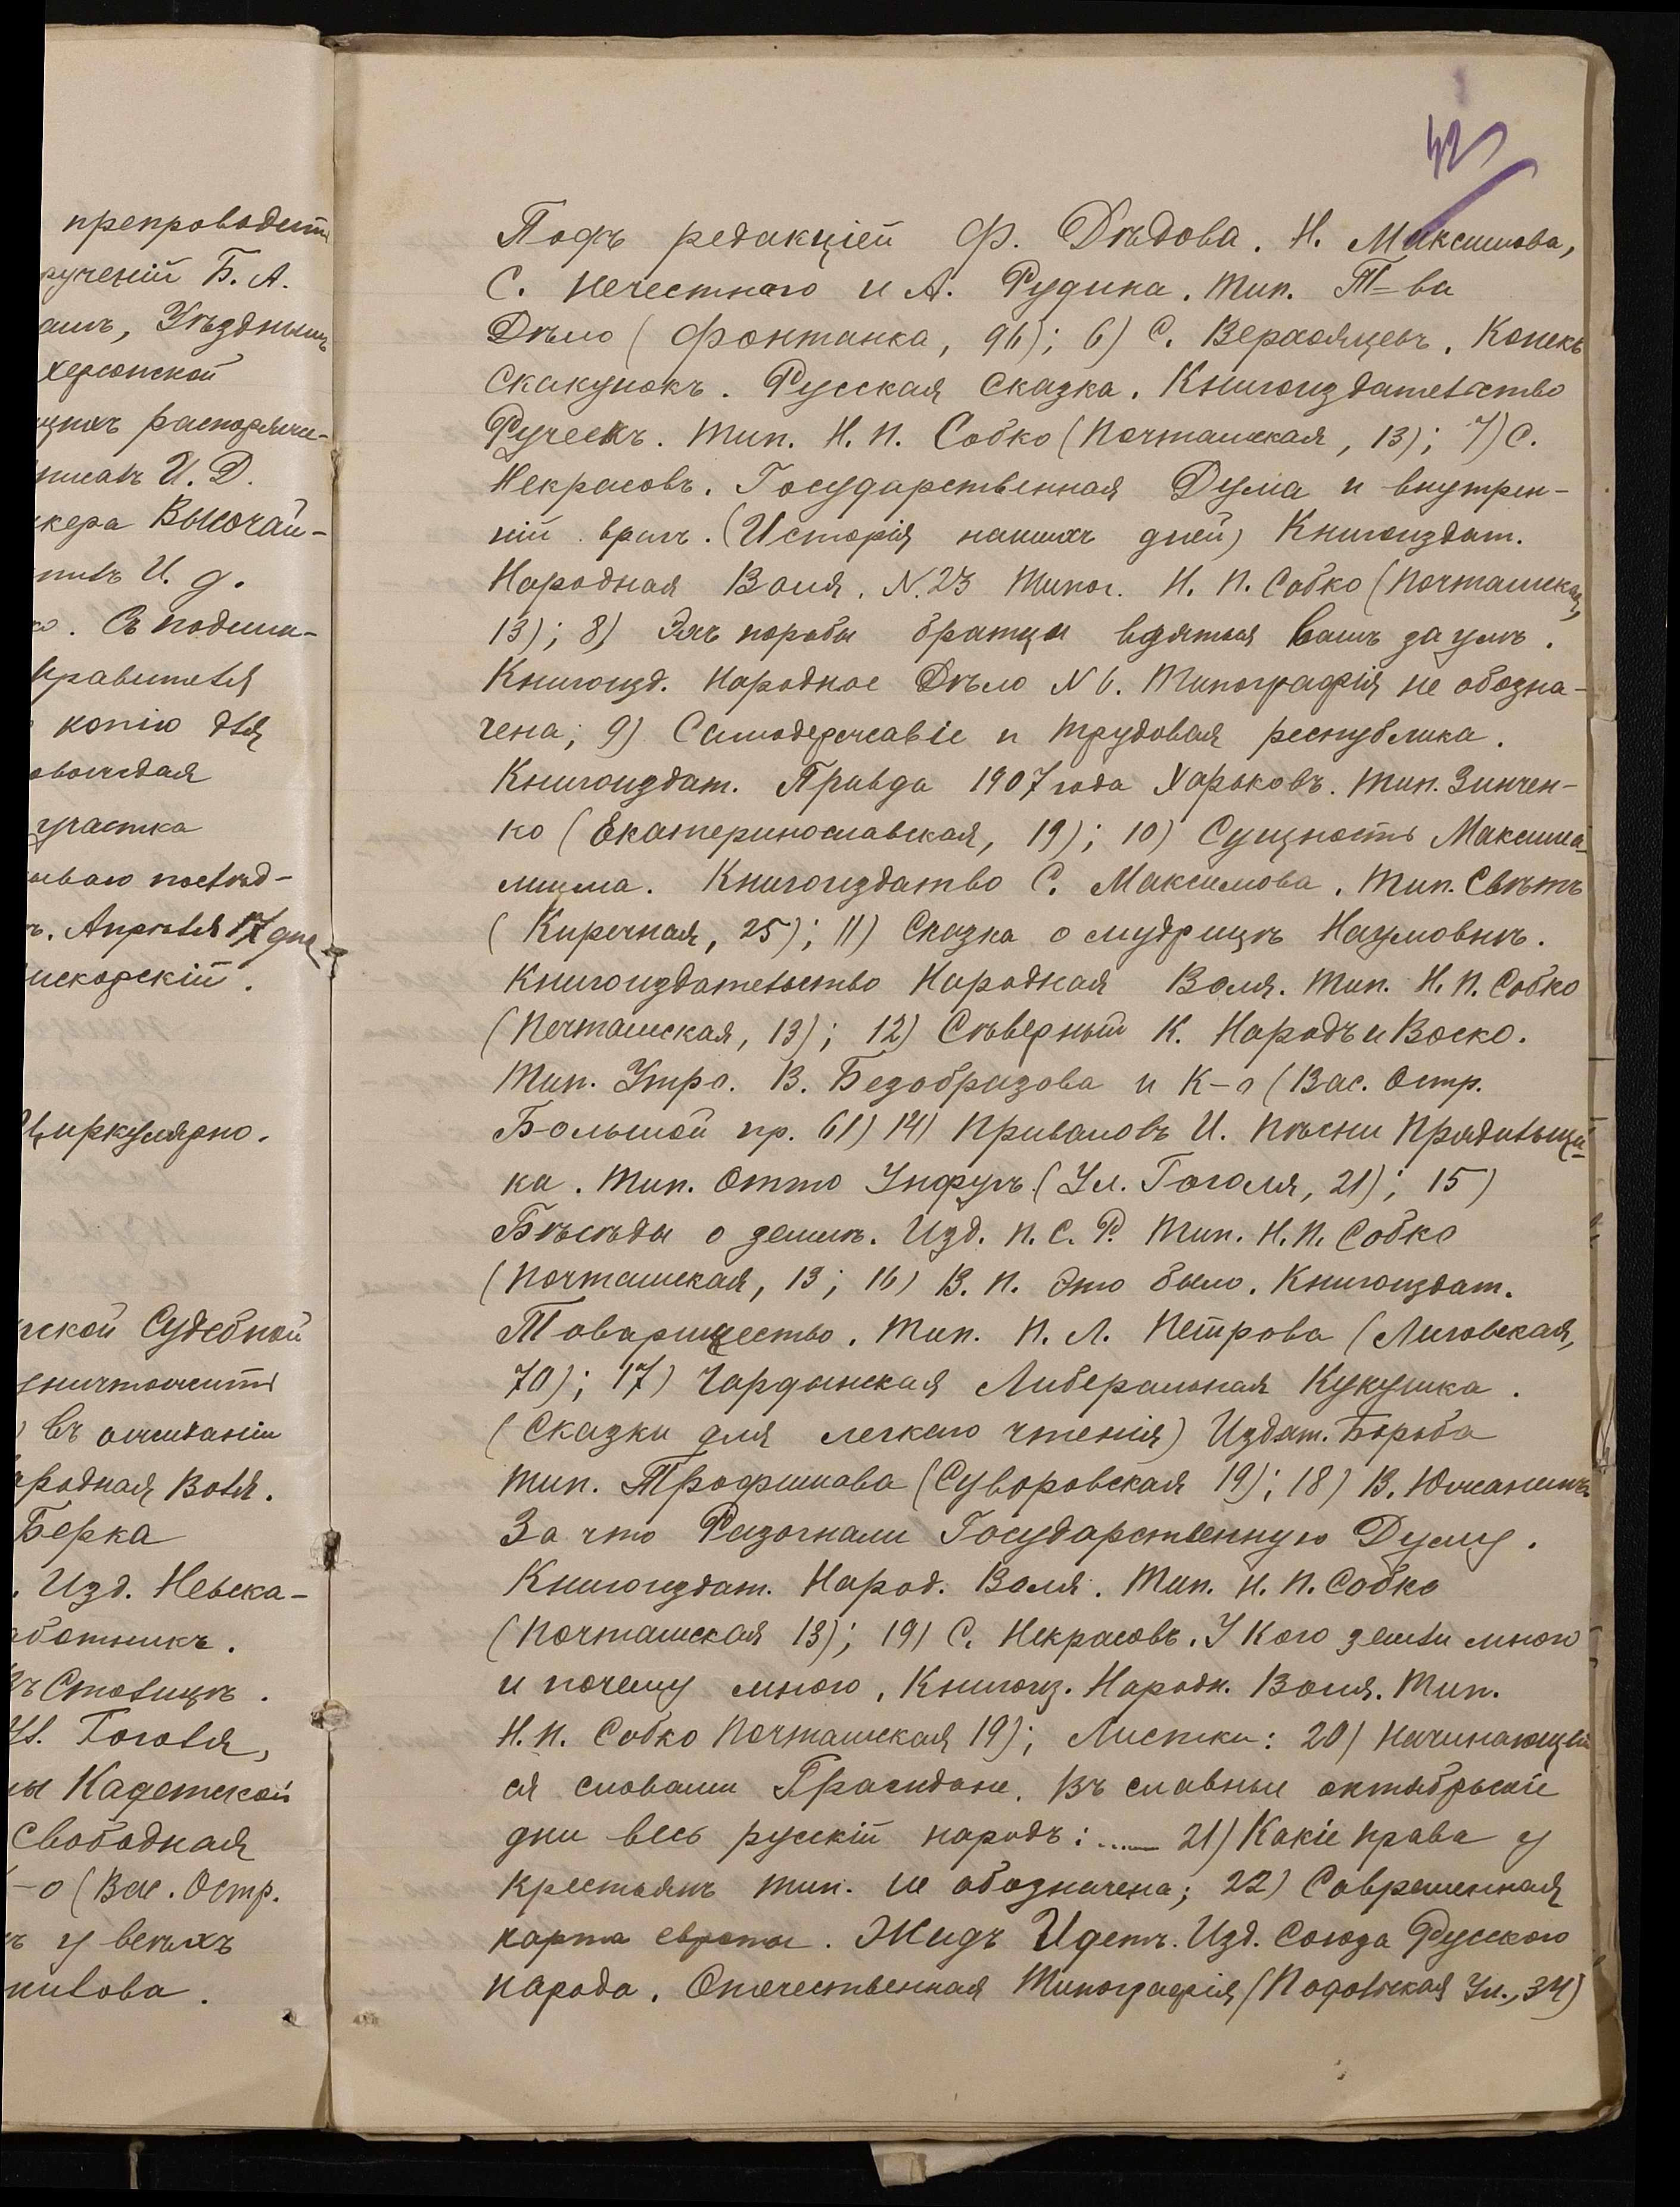 препроводить
рученій Б. А.
амъ, Уѣзднымъ
херсонской
распоряже-
писалъ И. Д.
кера Высочай-
питъ И. д.
Съ подлин-
правителя
копію для
участка
послѣд-
Апрѣля 17 дня
искорскій.
Циркулярно.
ской Судебной
уничтожить
въ ожиданіи
ародная Воля.
Берка
. Изд. Невска-
аботникъ.
въ Столицѣ.
Ул. Гоголя,
ы Кадетской
Свободная
-о (Вас. Остр.
ъ у всѣхъ
нилова.
42
Подъ редакціей Ф. Дѣдова. Н. Максимова,
С. Нечестнаго и А. Рудина. Тип. Т-ва
Дѣло (Фонтанка, 96); 6) С. Верхоянцевъ. Конекъ
Скакунокъ. Русская Сказка. Книгоиздательство
Ручеекъ. Тип. Н. П. Собко (Почтамская, 13); 7) С.
Некрасовъ. Государственная Дума и внутрен-
ній врагъ. (Исторія нашихъ дней) Книгоиздат.
Народная Воля. N. 23 Типог. Н. П. Собко (Почтамская,
13); 8) Эхъ пораба братцы взяться вамъ за умъ.
Книгоизд. Народное Дѣло N 6. Типографія не обозна-
чена; 9) Самодержавіе и трудовая республика.
Книгоиздат. Правда 1907 года Харьковъ. Тип. Зинчен-
ко (Екатеринославская, 19); 10) Сущность Максима-
лизма. Книгоиздатво С. Максимова. Тип. Свѣтъ
(Кирочная, 25); 11) Сказка о мудрицѣ Наумовнѣ.
Книгоиздательство Народная Воля. Тип. Н. П. Собко
(Почтамская, 13); 12) Сѣверный К. Народъ и Воско.
Тип. Утро. В. Безобразова и К-о (Вас. Остр.
Большой пр. 61) 14) Приваловъ И. Пѣсни Прядильщи-
ка. Тип. Отто Унфугъ (Ул. Гоголя, 21); 15)
Бѣсѣды о землѣ. Изд. П. С. Р. Тип. Н. П. Собко
(Почтамская, 13; 16) В. П. Это было. Книгоиздат.
Товарищество. Тип. П. Л. Петрова (Лиговская,
70); 17) Чардынская Либеральная Кукушка.
(Сказки для легкаго чтенія) Издат. Борьба
Тип. Трофимова (Суворовская 19); 18) В. Южанинъ
За что Разогнали Государственную Думу.
Книгоиздат. Народ. Воля. Тип. Н. П. Собко
(Почтамская 13); 19) С. Некрасовъ. У Кого земли много
и почему много, Книгоиз. Народн. Воля. Тип.
Н. П. Собко Почтамская 19); Листки: 20) Начинающій
ся словами Граждане. Въ славные октябрьскіе
дни весь русскій народъ:...... 21) Какіе права у
крестьянъ тип. не обозначена; 22) Современная
карта европы. Жидъ Идетъ. Изд. Союза Русского
народа. Отечественная Типографія (Подольская Ул., 34)